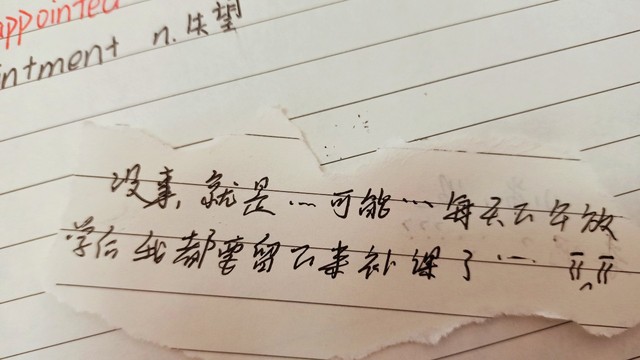 appointed
intment n.失望
没事,就是…可能…每天下午放
学后我都要留下来补课了…